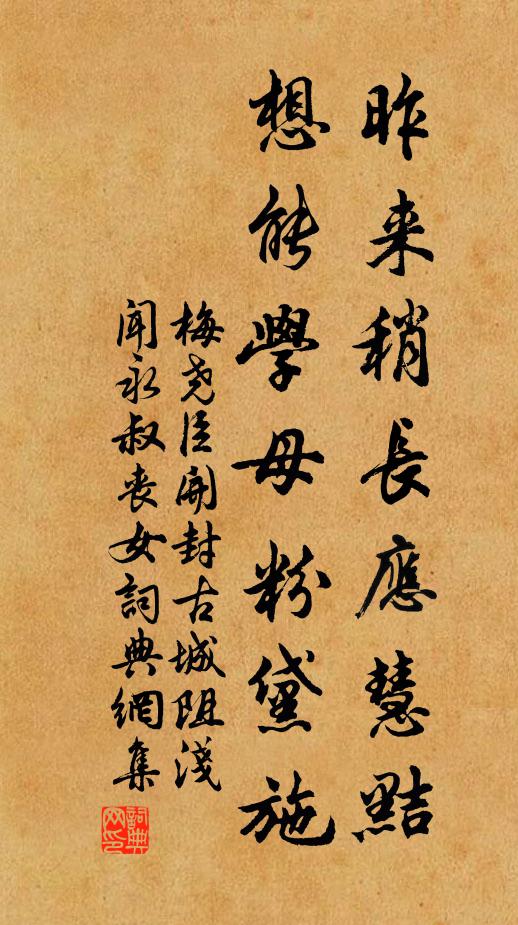 昨来稍長應慧黠
想能學母粉黛施
梅尧臣開封古城阻淺
聞永叔喪女詞典網集
詞典网印